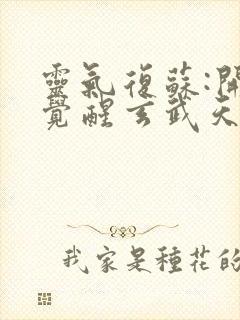 靈氣復蘇:開
覺醒玄武天
我家是種花的